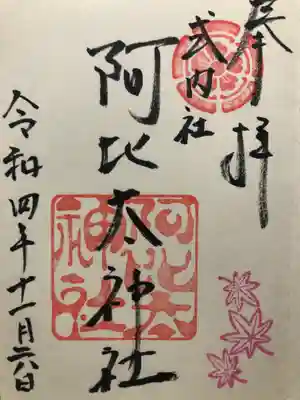 奉拝
式内社
阿比太神社
阿比太
神社
令和四年十一月六日